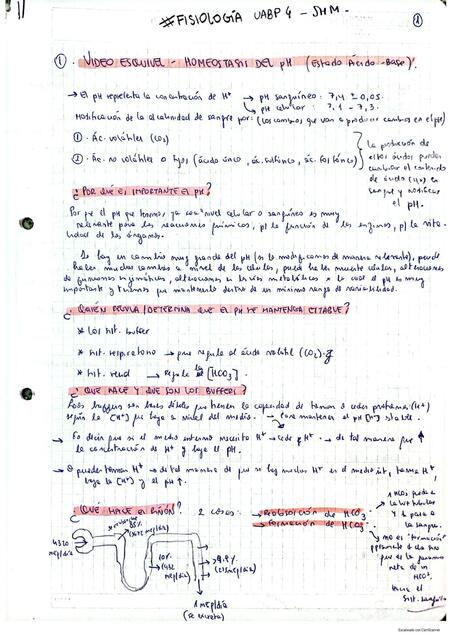 #FISIOLOGÍA UABP 4 - SHM
1
① VIDEO ESQUIVEL - HOMEOSTASIS DEL pH (Estado Ácido-Base)
→ El pH representa la concentración de H+ → pH sanguíneo: 7,4 ± 0,05.
↳ pH celular: 7.1 - 7.3.
Modificación de la alcalinidad de sangre por: (los cambios que van a producir cambios en el pH)
① Ác. volátiles (CO2)
② Ác. no volátiles o fijos (ácido único, ác. sulfúrico, ác. fosfórico)
La producción de
estos ácidos pueden
cambiar el contenido
de ácido en
sangre y modifica
el pH.
¿POR QUE ES IMPORTANTE EL PH?
Por que el pH que tenemos, ya sea nivel celular o sanguíneo es muy
relevante para las reacciones químicas, p/ la función de las enzimas, p/ la vita-
lidad de los órganos.
Si hay un cambio muy grande del pH (si lo modificamos de manera relevante), puede
haber muchos cambios a nivel de las células, puede haber muerte celular, alteraciones
enzimáticas, alteraciones en las vías metabólicas x lo cual el pH es muy
importante y tenemos que mantenerlo dentro de un mínimo rango de variabilidad.
¿QUIÉN REGULA/DETERMINA QUE EL PH SE MANTENGA ESTABLE?
* Los sist. buffer
* Sist. respiratorio → que regula el ácido volátil (CO2)
* Sist. renal → Regula la [HCO3].
¿QUE HACE Y QUE SON LOS BUFFERS?
Los buffers son bases débiles que tienen la capacidad de tomar o ceder protones (H+)
según la [H+] que haya a nivel del medio. → Para mantener el pH [H+] stable.
→ Es decir que si el medio interno necesita H+ → cede H+ → de tal manera que ↑
la concentración de H+ y baje el pH.
→ O pueden tomar H+ → de tal manera que si hay muchos H+ en el medio int, toma H+,
baja la [H+] y el pH ↑.
¿QUÉ HACE EL RIÑÓN? 2 cosas:
→ Reabsorción de HCO3
→ Formación de HCO3
4320
mEq/día
85%
10%
(432
mEq/día)
4.9%
1 mEq/día
(se excreta)
y no es "formación"
Escaneado con CamScanner